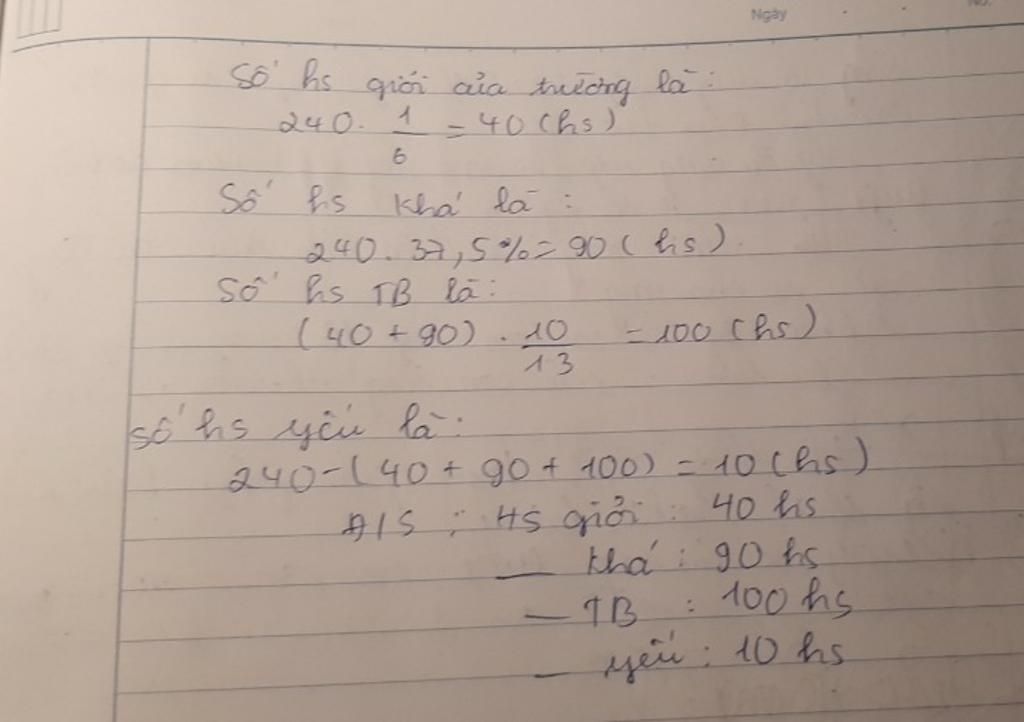 Ngày
No.
Số hs giỏi của trường là:
240. 1/6 = 40 (hs)
Số hs khá là:
240. 37,5% = 90 (hs)
Số hs TB là:
(40 + 90) . 10/13 = 100 (hs)
số hs yếu là:
240 - (40 + 90 + 100) = 10 (hs)
Đ/S : HS giỏi : 40 hs
— khá : 90 hs
— TB : 100 hs
— yếu : 10 hs